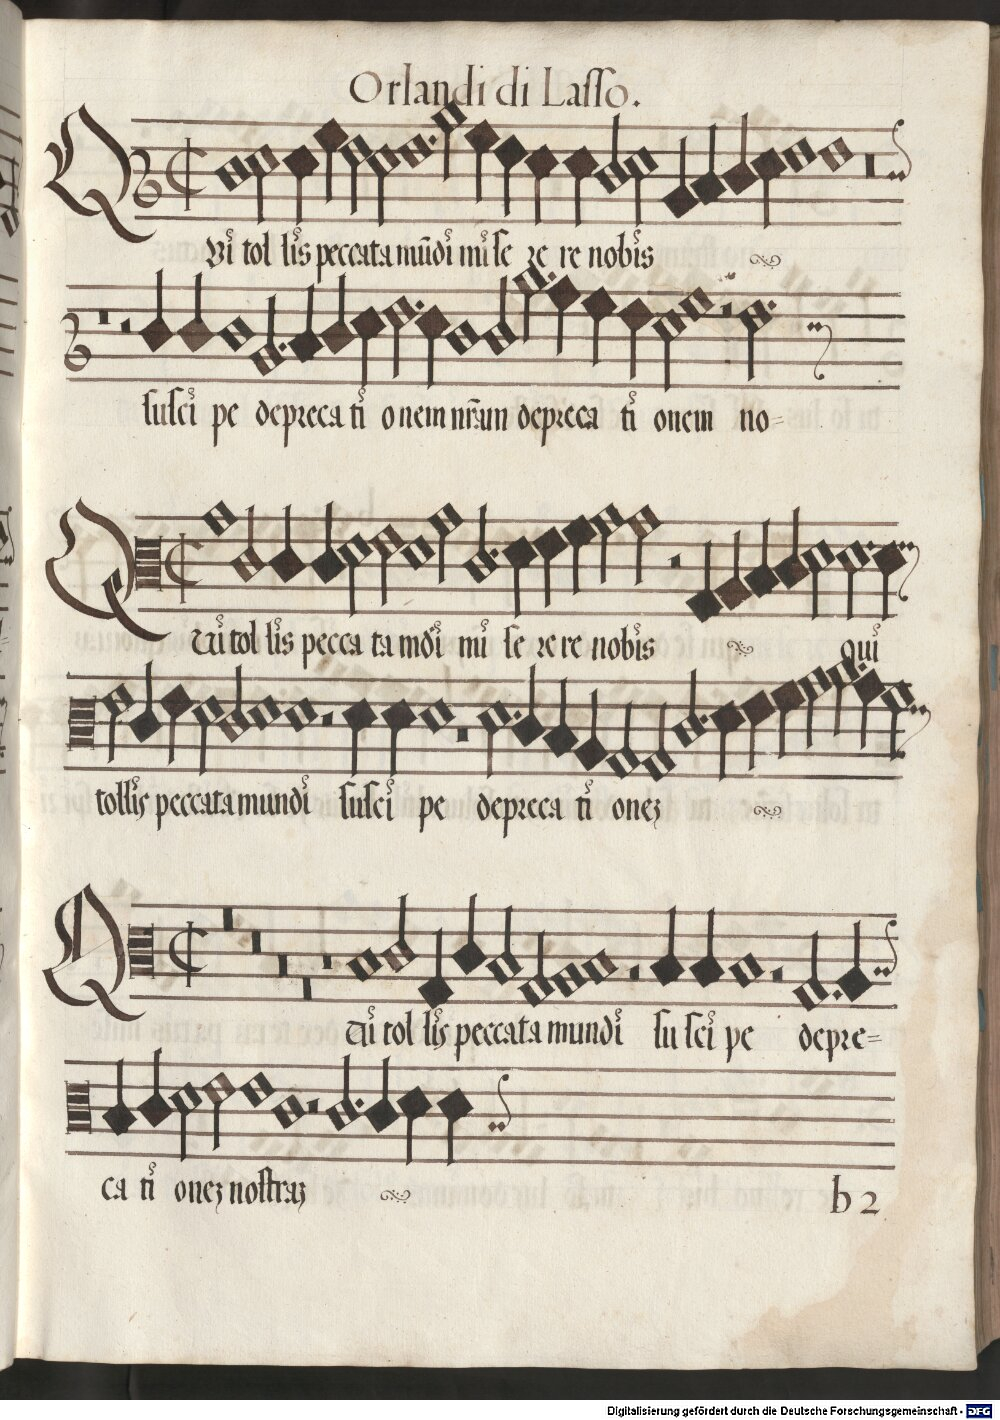 Orlandi di Lasso.
QVi tol lis peccata mūdi mi se re re nobis
susci pe depreca ti onem nr̄am depreca ti onem no=
QVi tol lis pecca ta mōdi mi se re re nobis qui
tollis peccata mundi susci pe depreca ti onez
QVi tol lis peccata mundi su sci pe depre=
ca ti onez nostraz
b 2
Digitalisierung gefördert durch die Deutsche Forschungsgemeinschaft - DFG